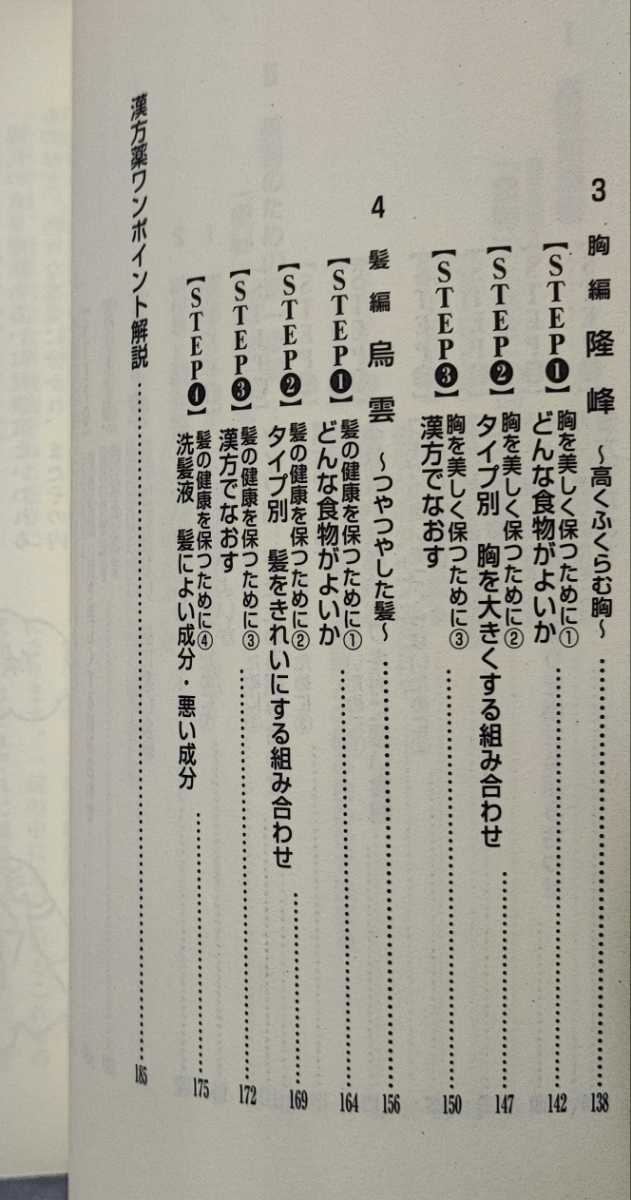 3 胸編 隆峰 ~高くふくらむ胸~……138
【STEP❶】胸を美しく保つために①
どんな食物がよいか……142
【STEP❷】胸を美しく保つために②
タイプ別 胸を大きくする組み合わせ……147
【STEP❸】胸を美しく保つために③
漢方でなおす……150
4 髪編 烏雲 ~つやつやした髪~……156
【STEP❶】髪の健康を保つために①
どんな食物がよいか……164
【STEP❷】髪の健康を保つために②
タイプ別 髪をきれいにする組み合わせ……169
【STEP❸】髪の健康を保つために③
漢方でなおす……172
【STEP❹】髪の健康を保つために④
洗髪液 髪によい成分・悪い成分……175
漢方薬ワンポイント解説……185